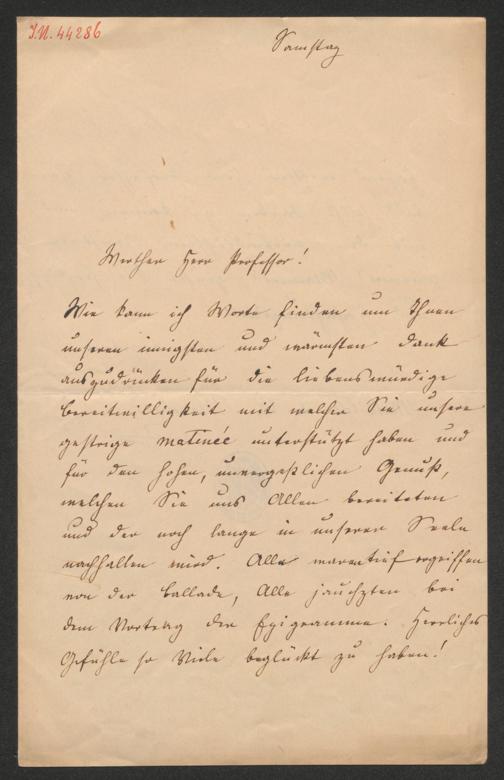 I.N. 44286
Samstag
Werther Herr Professor!
Wie kann ich Worte finden um Ihnen
unseren innigsten und wärmsten Dank
auszudrücken für die liebenswürdige
Bereitwilligkeit mit welcher Sie unsere
gestrige Matinée unterstützt haben und
für den hohen, unvergeßlichen Genuß,
welchen Sie uns Allen bereiteten
und der noch lange in unseren Seelen
nachhallen wird. Alle waren tief ergriffen
von der Ballade, Alle jauchzten bei
dem Vortrag der Epigramme. Herrliches
Gefühl so Viele beglückt zu haben!